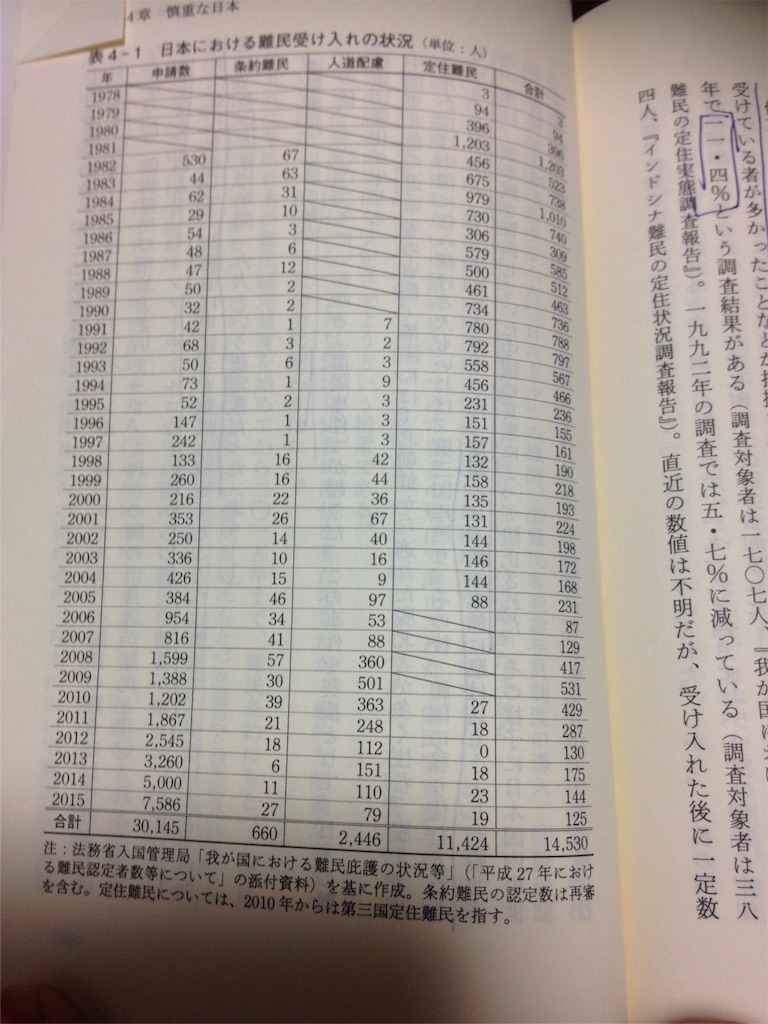 受けている者が多かったことなどが
年で一一・四％という調査結果がある（調査対象者は一七〇七人、『我が国におけ
難民の定住実態調査報告』）。一九九二年の調査では五・七％に減っている（調査対象者は三八
四人、『インドシナ難民の定住状況調査報告』）。直近の数値は不明だが、受け入れた後に一定数
4章 慎重な日本
表4-1 日本における難民受け入れの状況（単位：人）
年 申請数 条約難民 人道配慮 定住難民 合計
1978 3 3
1979 94 94
1980 396 396
1981 1,203 1,203
1982 530 67 456 523
1983 44 63 675 738
1984 62 31 979 1,010
1985 29 10 730 740
1986 54 3 306 309
1987 48 6 579 585
1988 47 12 500 512
1989 50 2 461 463
1990 32 2 734 736
1991 42 1 7 780 788
1992 68 3 2 792 797
1993 50 6 3 558 567
1994 73 1 9 456 466
1995 52 2 3 231 236
1996 147 1 3 151 155
1997 242 1 3 157 161
1998 133 16 42 132 190
1999 260 16 44 158 218
2000 216 22 36 135 193
2001 353 26 67 131 224
2002 250 14 40 144 198
2003 336 10 16 146 172
2004 426 15 9 144 168
2005 384 46 97 88 231
2006 954 34 53 87
2007 816 41 88 129
2008 1,599 57 360 417
2009 1,388 30 501 531
2010 1,202 39 363 27 429
2011 1,867 21 248 18 287
2012 2,545 18 112 0 130
2013 3,260 6 151 18 175
2014 5,000 11 110 23 144
2015 7,586 27 79 19 125
合計 30,145 660 2,446 11,424 14,530
注：法務省入国管理局「我が国における難民庇護の状況等」（「平成27年におけ
る難民認定者数等について」の添付資料）を基に作成。条約難民の認定数は再審
を含む。定住難民については、2010年からは第三国定住難民を指す。